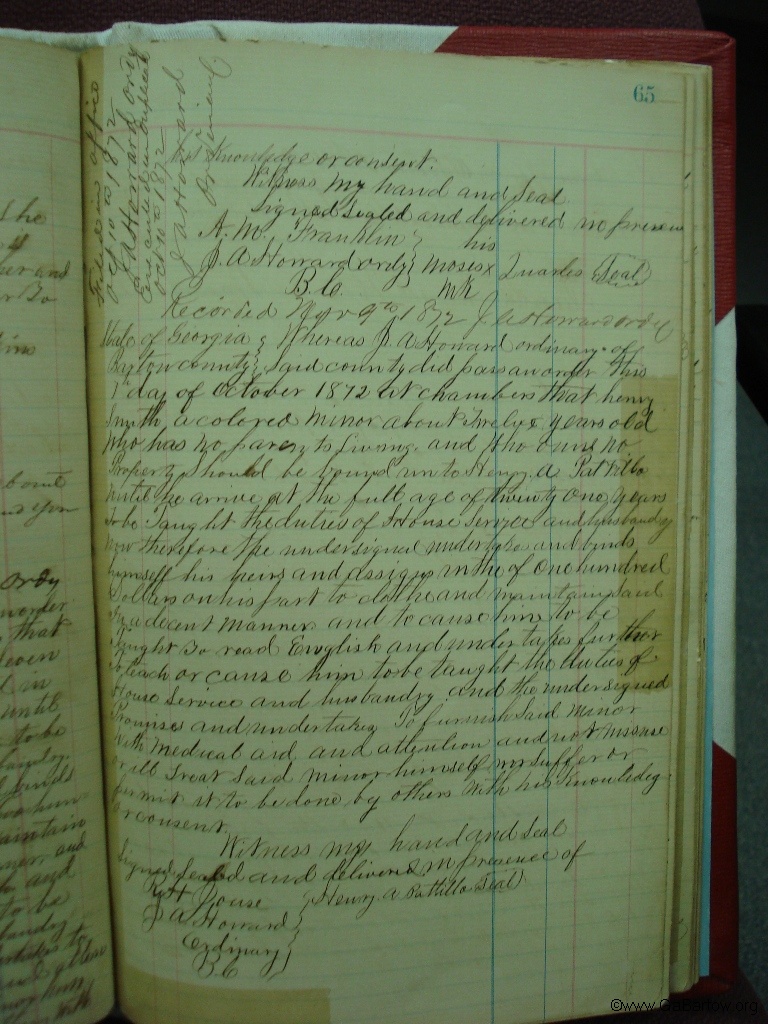 65
Knowledge or consent.
Witness my hand and Seal
Signed Sealed and delivered in presence
A. M. Franklin } his
J. A Howard ordy } Moses x Quarles Seal
B. C. mk
Recorded Nov 9th 1872 J A Howard ordy
State of Georgia } Whereas J A Howard ordinary of
Bartow county } Said county did pass an order this
1st day of October 1872 at chambers that henry
Smith, a colored minor about Twelve years old
Who has no parents living. and Who owns no
Property should be bound unto Henry A Pattillo
Until he arrive at the full age of twenty one years
To be Taught the duties of House Service and husbandry
Now therefore the undersigned undertake and binds
himself his heirs and assigns in the of one hundred
Dollars on his part to clothe and maintain said
in a decent manner and to cause him to be
Taught to read English and undertakes further
to teach or cause him to be taught the duties of
House Service and husbandry and the undersigned
Promises and undertakes To furnish Said minor
With medical aid and attention and not misuse
or ill Treat Said minor himself nor suffer or
permit it to be done by others With his Knowledg
or consent.
Witness my hand and Seal
Signed Sealed and delivered in presence of
House } Henry A Pattillo Seal
J A Howard }
Ordinary }
B C
office
Oct 10th 1872
J A Howard ordy
Executed in duplicate
Oct 10th 1872
J A Howard
Ordinary
the
her and
about
and you
Ordy
order
that
eleven
in
until
to be
binds
maintain
ner and
and
to be
With
©www.GaBartow.org